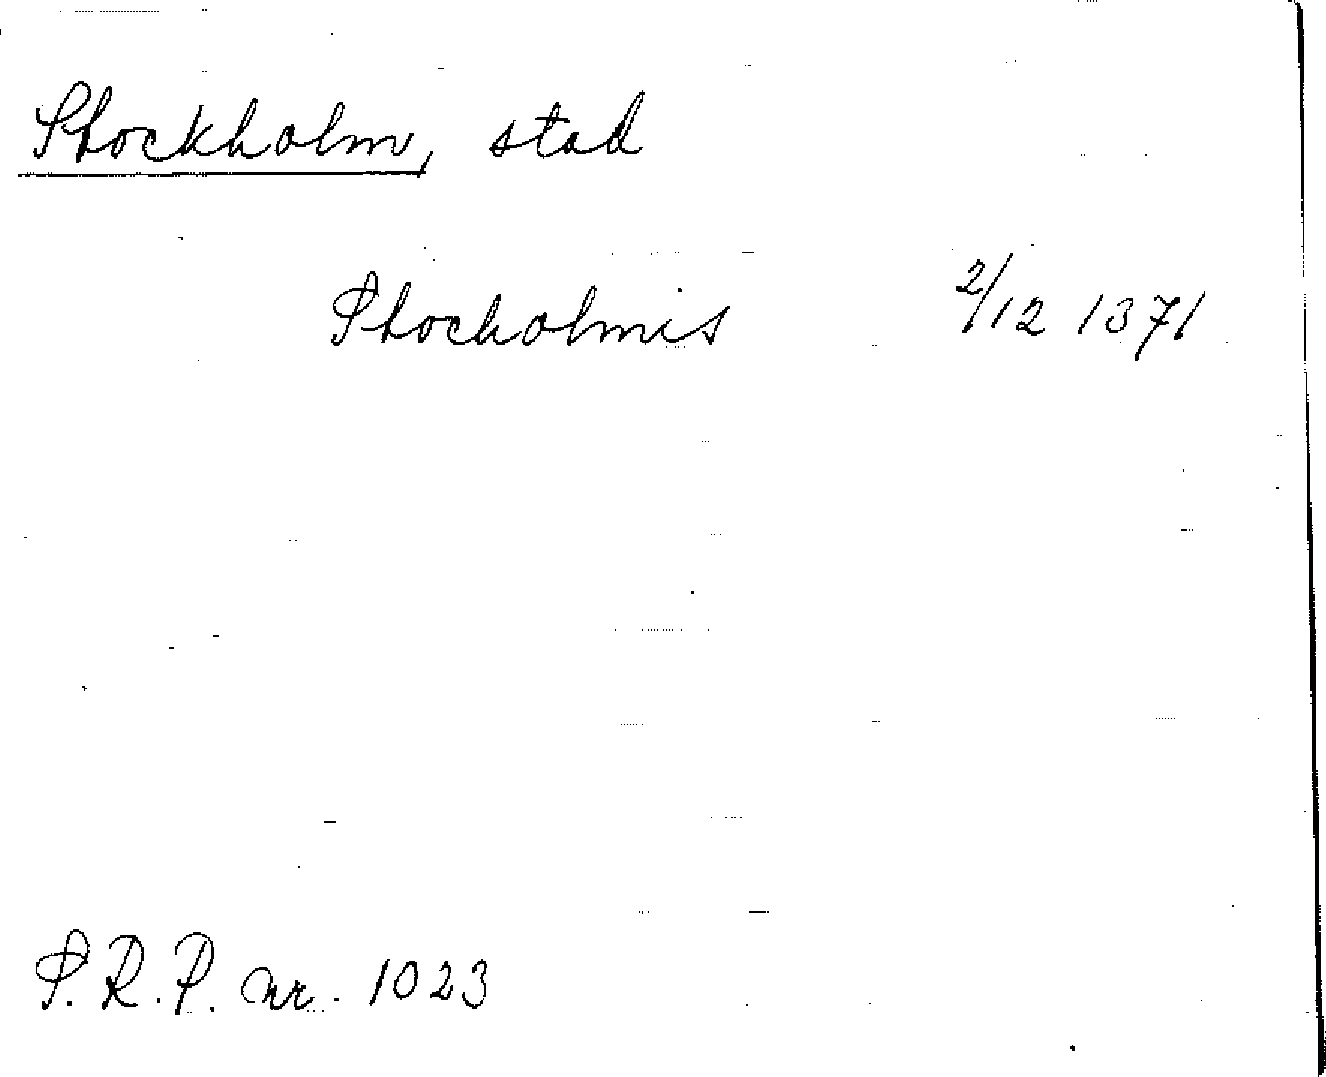 Stockholm, stad
Stocholmis 2/12 1371
S.R.P. nr. 1023